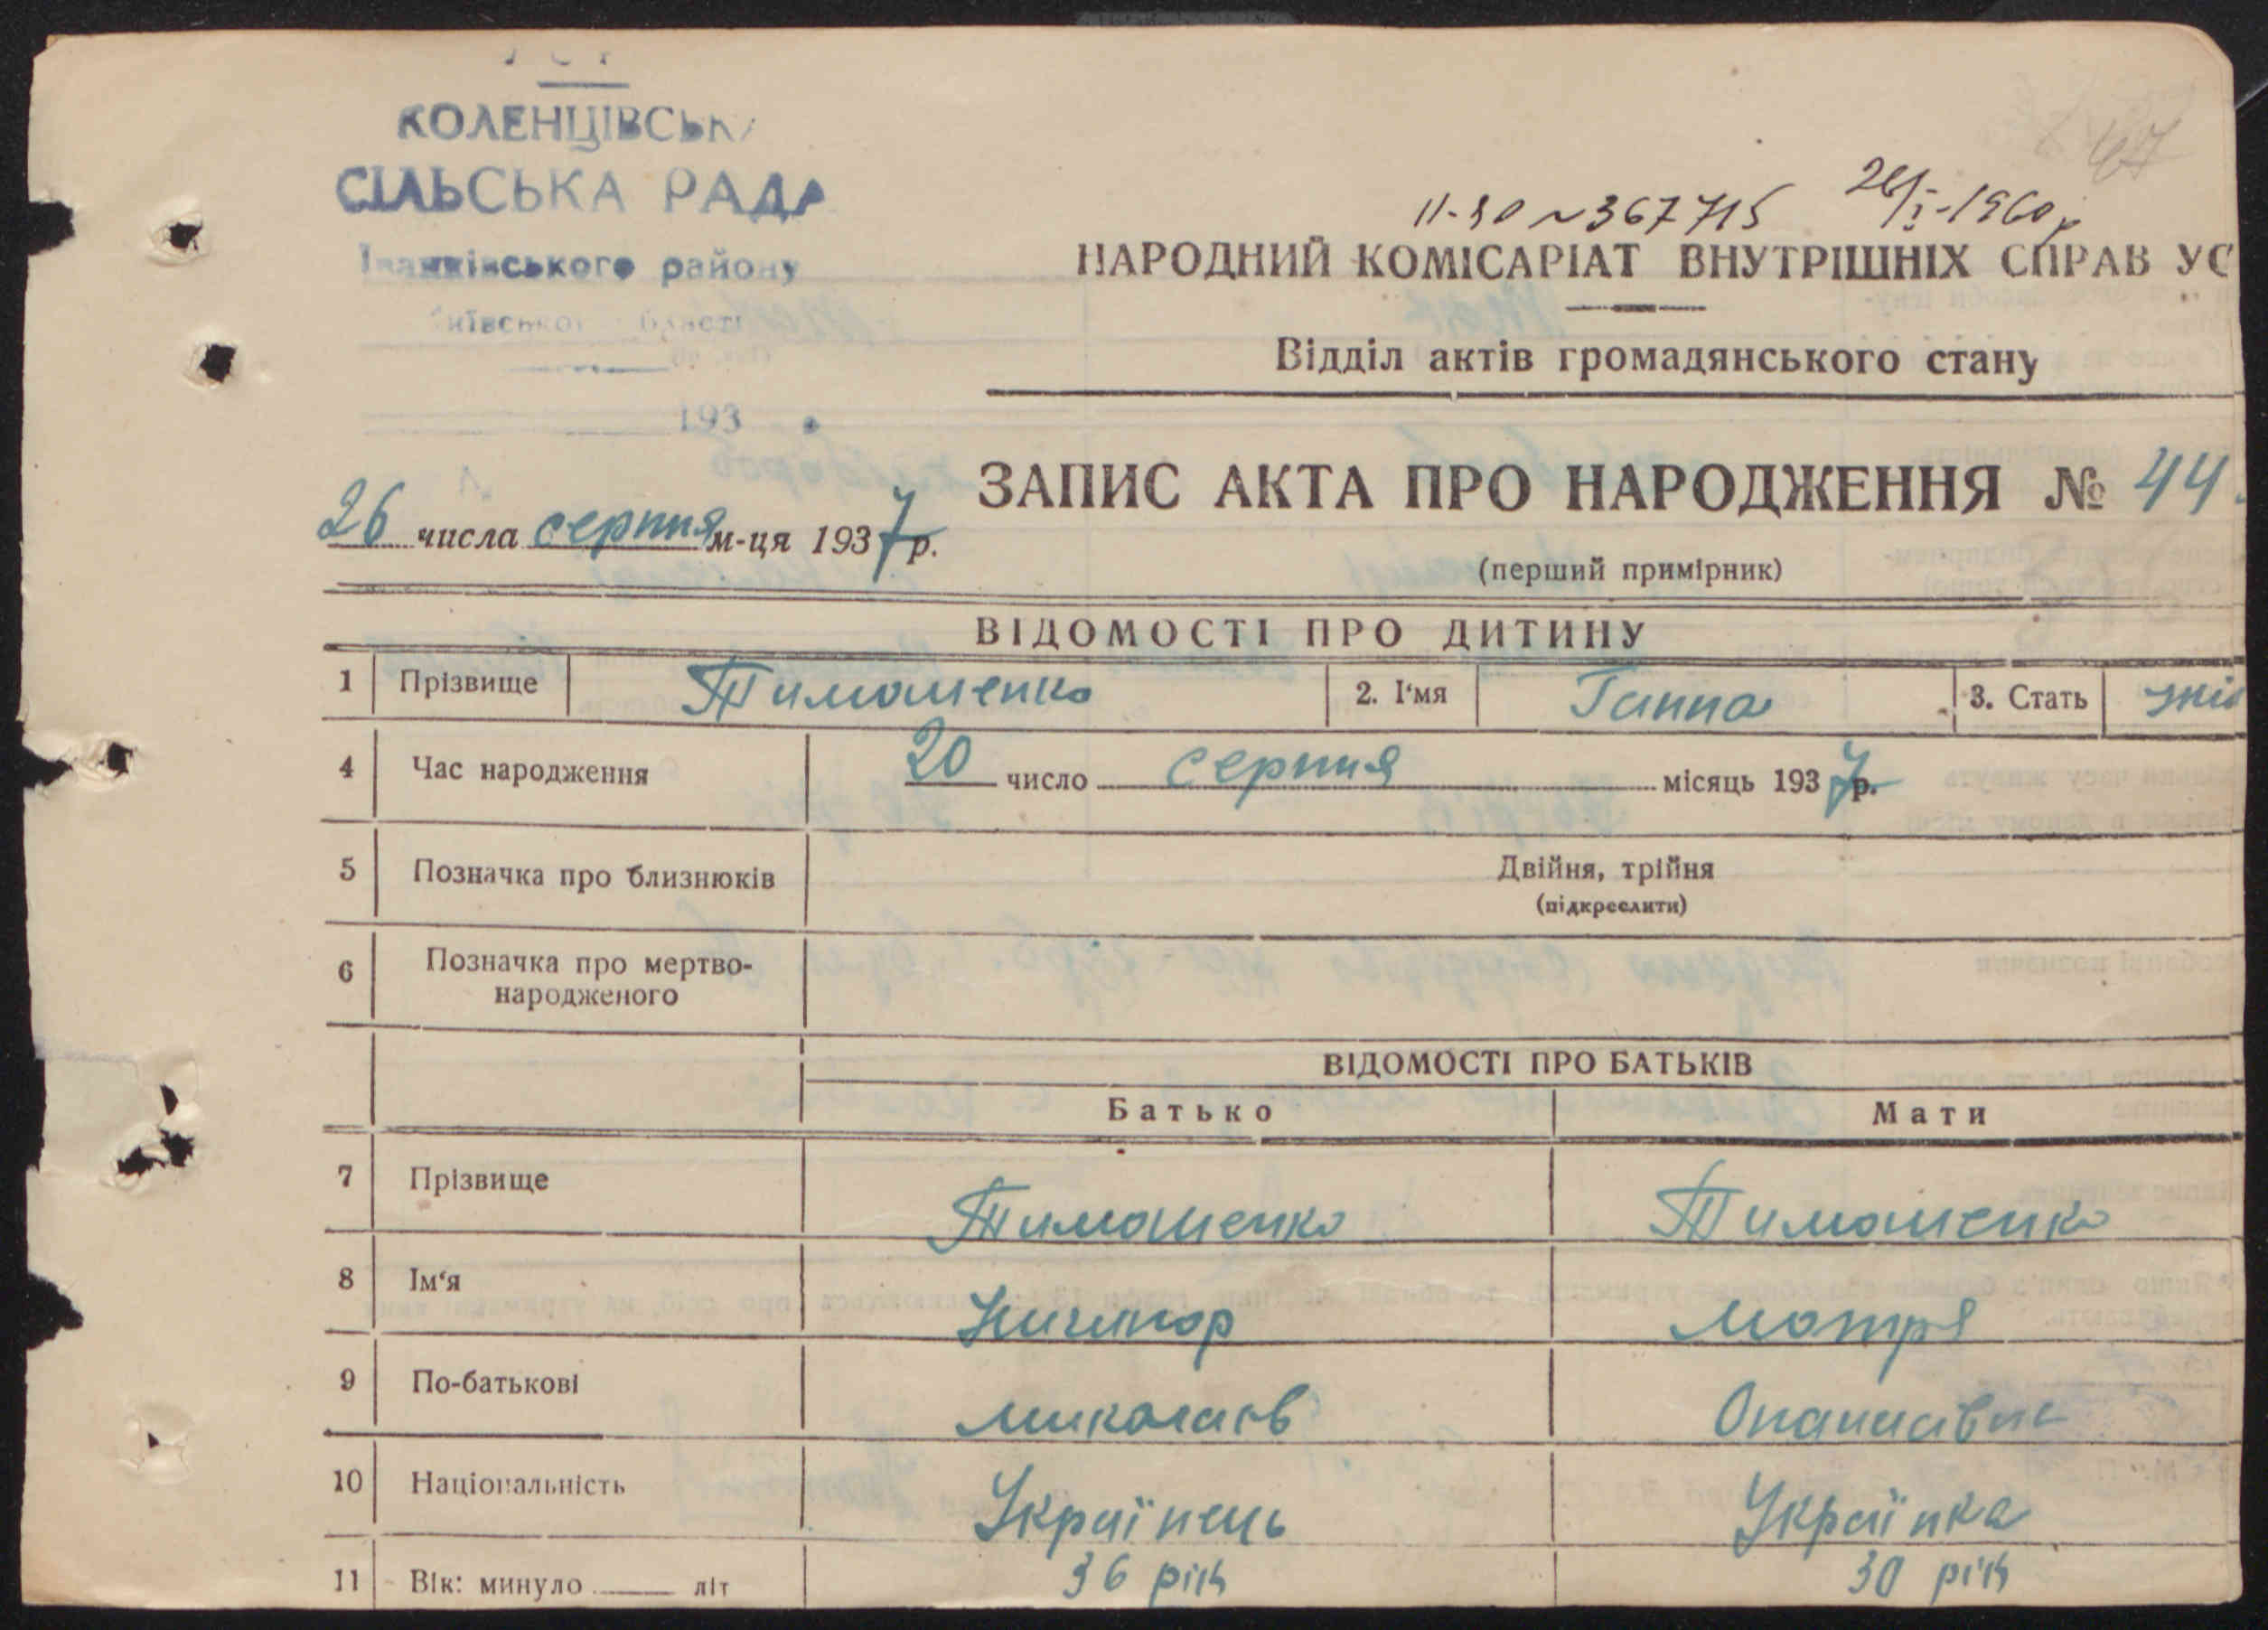 КОЛЕНЦІВСЬК
СІЛЬСЬКА РАДА
Іванківського району
Київської області
193
47
11-30 № 367715 26/I-1960р
НАРОДНИЙ КОМІСАРІАТ ВНУТРІШНІХ СПРАВ УС
Відділ актів громадянського стану
ЗАПИС АКТА ПРО НАРОДЖЕННЯ № 44.
26 числа серпня м-ця 1937 р.
(перший примірник)
ВІДОМОСТІ ПРО ДИТИНУ
1 Прізвище Тимошенко 2. І'мя Ганна 3. Стать жіо
4 Час народження 20 число серпня місяць 1937 р.
5 Позначка про близнюків Двійня, трійня
(підкреслити)
6 Позначка про мертво-
народженого
ВІДОМОСТІ ПРО БАТЬКІВ
Батько Мати
7 Прізвище Тимошенко Тимошенко
8 Ім'я Ничипор Мотря
9 По-батькові Миколаєв Опанасівна
10 Національність Українець Українка
11 Вік: минуло літ 36 рік 30 рік